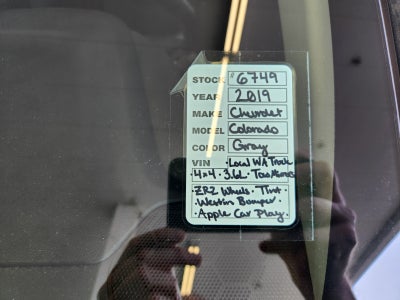 STOCK # 6749
YEAR 2019
MAKE Chevrolet
MODEL Colorado
COLOR Gray
VIN · Local WA Truck
· 4x4 · 3.6L ·
· ZR2 Wheels · Tint ·
Westin Bumper ·
· Apple Car Play ·